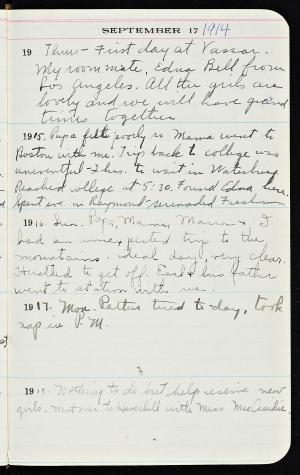 SEPTEMBER 17 1914
19 Thurs - First day at Vassar.
My roommate, Edna Bell from
Los Angeles. All the girls are
lovely and we will have grand
times together
1915. Papa felt poorly so Mama went to
Boston with me. Trip back to college was
uneventful - 2 hrs. to wait in Waterbury
Reached college at 5:30. Found Edna here.
Spent eve. in Raymond - serenaded Freshmen
1916 Sun. Papa, Mama, Marion & I
had an unexpected trip to the
mountains. Ideal day, very clear.
Hustled to get off. Earl & his father
went to station with us.
1917. Mon. Rather tired to-day, took
nap in P.M.
19 Nothing to do but help receive new
girls. Went over to Haverhill with Miss